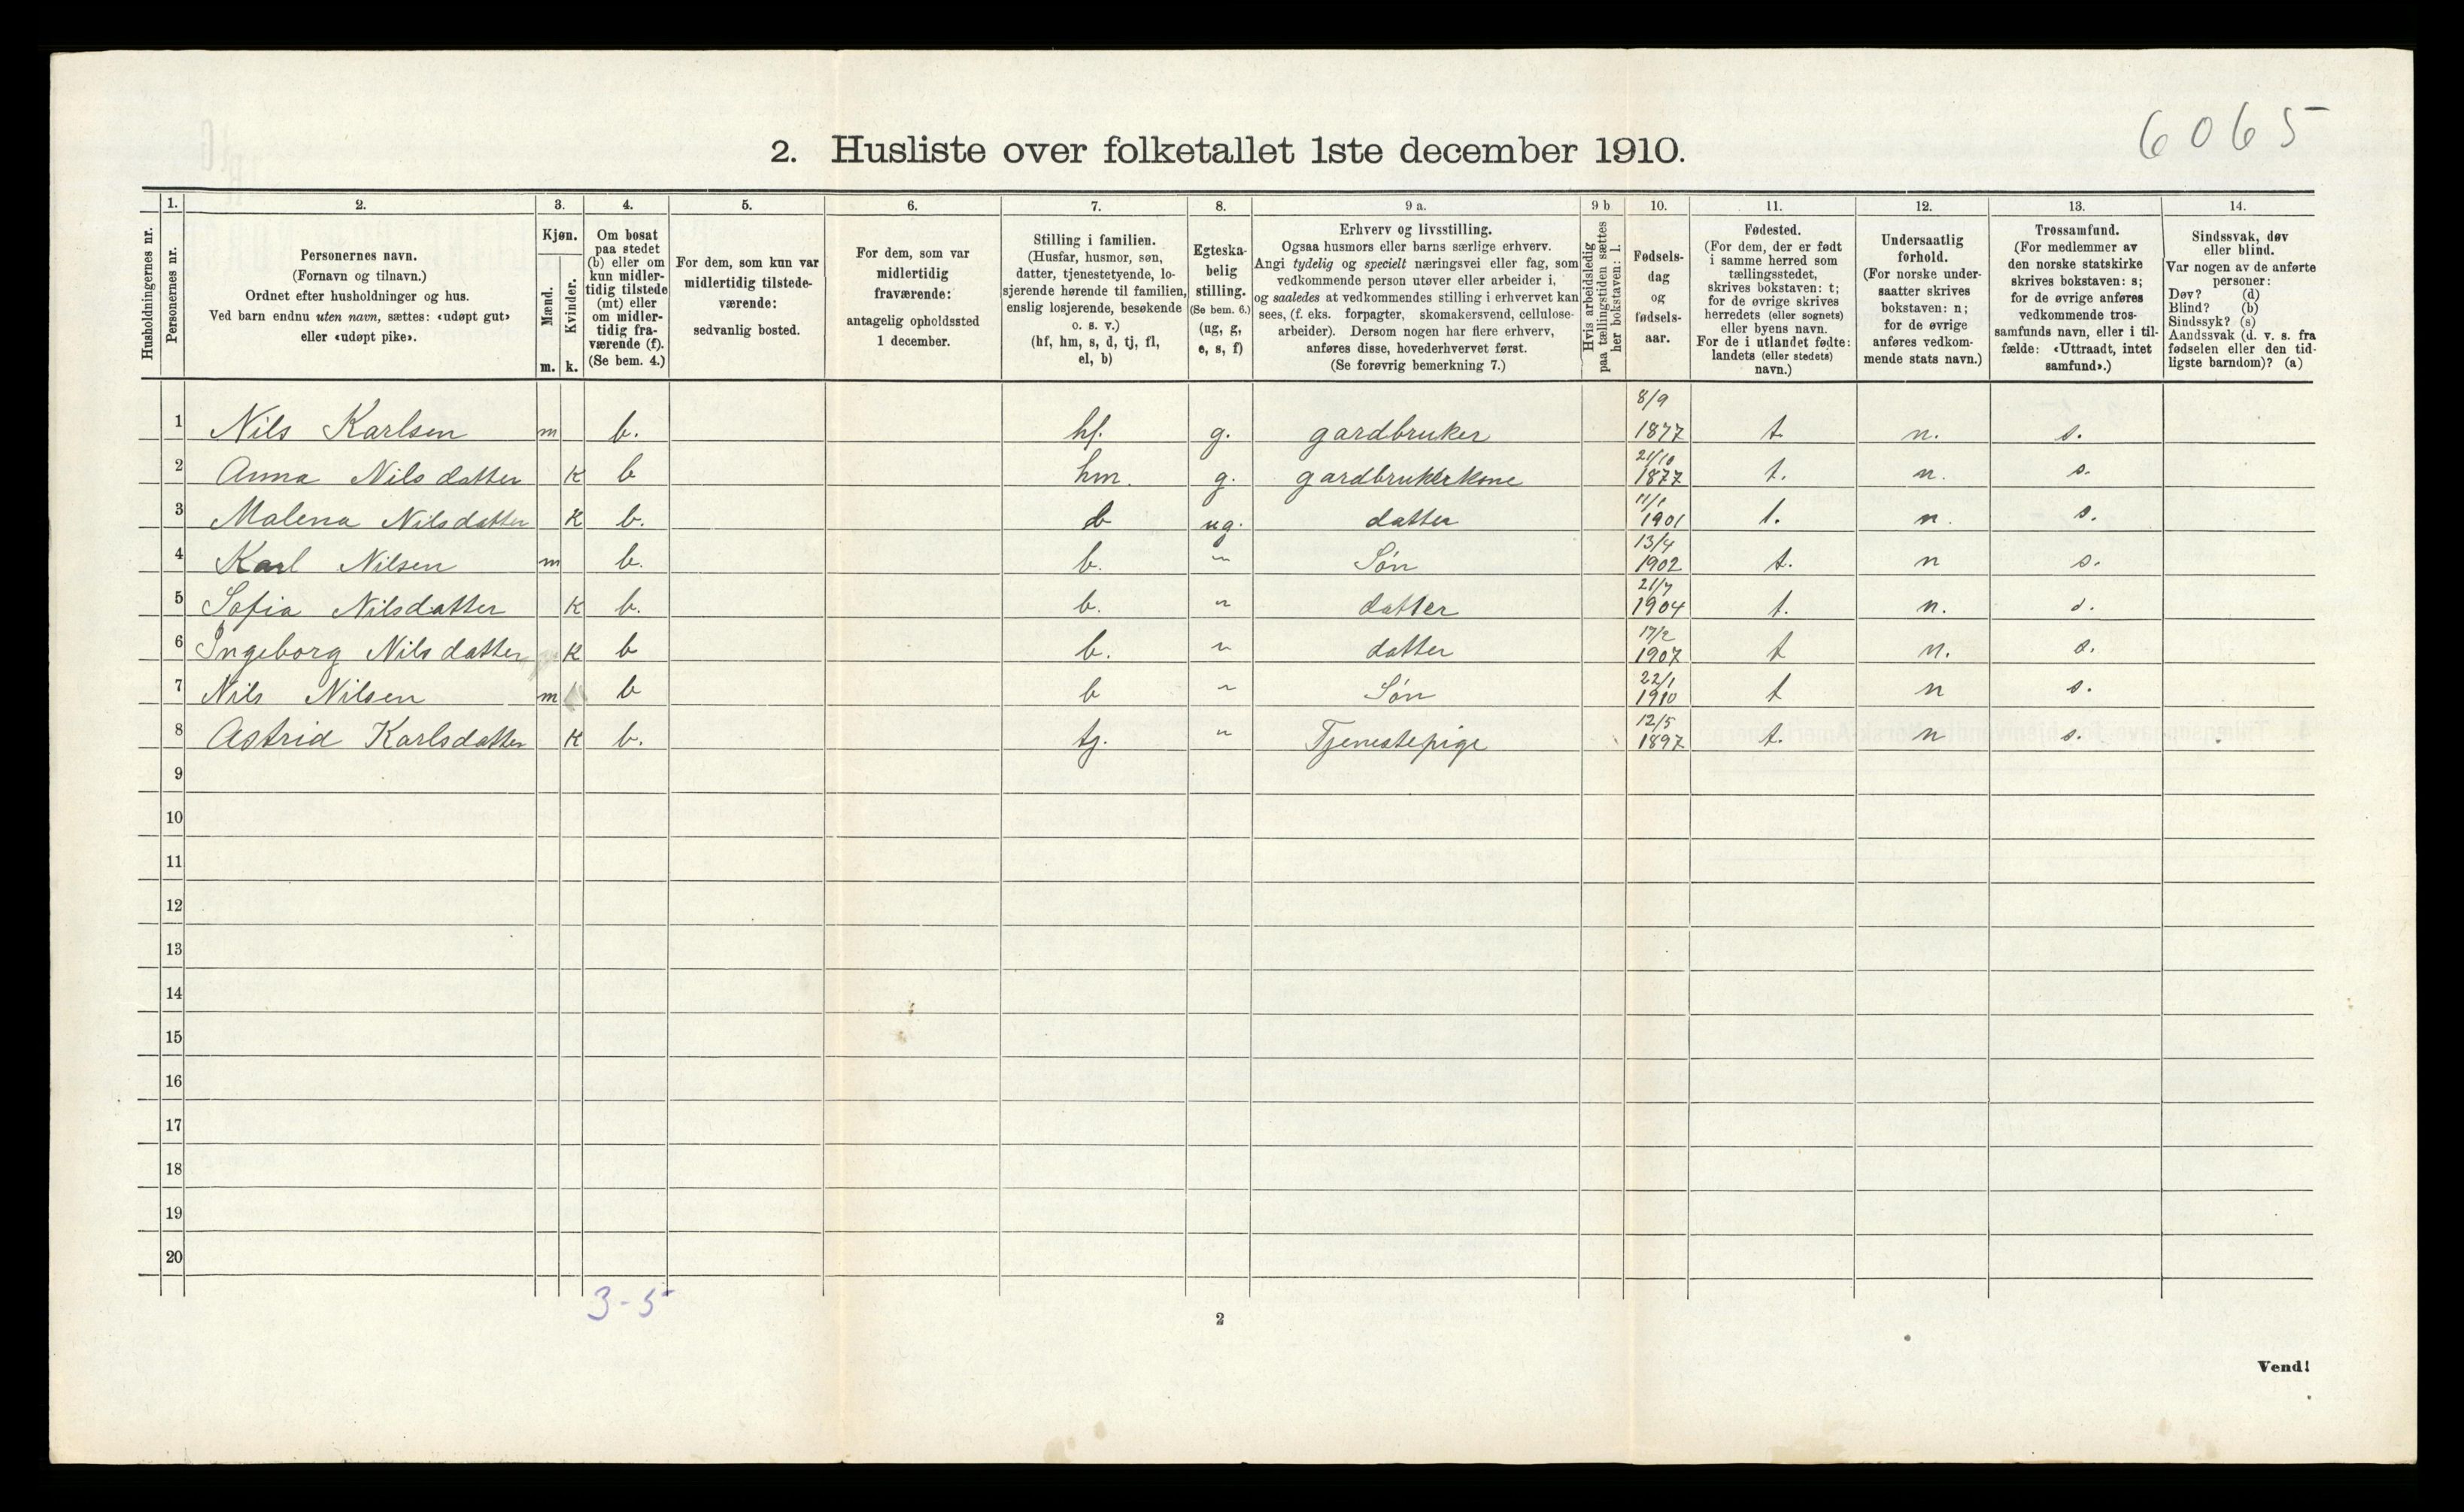 6065
2. Husliste over folketallet 1ste december 1910.
Husholdningernes nr.
1. Personernes nr.
2. Personernes navn. (Fornavn og tilnavn.) Ordnet efter husholdninger og hus. Ved barn endnu uten navn, sættes: «udøpt gut» eller «udøpt pike».
3. Kjøn. Mænd. m. Kvinder. k.
4. Om bosat paa stedet (b) eller om kun midlertidig tilstede (mt) eller om midlertidig fraværende (f). (Se bem. 4.)
5. For dem, som kun var midlertidig tilstedeværende: sedvanlig bosted.
6. For dem, som var midlertidig fraværende: antagelig opholdssted 1 december.
7. Stilling i familien. (Husfar, husmor, søn, datter, tjenestetyende, losjerende hørende til familien, enslig losjerende, besøkende o. s. v.) (hf, hm, s, d, tj, fl, el, b)
8. Egteskabelig stilling. (Se bem. 6.) (ug, g, e, s, f)
9 a. Erhverv og livsstilling. Ogsaa husmors eller barns særlige erhverv. Angi tydelig og specielt næringsvei eller fag, som vedkommende person utøver eller arbeider i, og saaledes at vedkommendes stilling i erhvervet kan sees, (f. eks. forpagter, skomakersvend, cellulosearbeider). Dersom nogen har flere erhverv, anføres disse, hovederhvervet først. (Se forøvrig bemerkning 7.)
9 b Hvis arbeidsledig paa tællingstiden sættes her bokstaven: l.
10. Fødselsdag og fødselsaar.
11. Fødested. (For dem, der er født i samme herred som tællingsstedet, skrives bokstaven: t; for de øvrige skrives herredets (eller sognets) eller byens navn. For de i utlandet fødte: landets (eller stedets) navn.)
12. Undersaatlig forhold. (For norske undersaatter skrives bokstaven: n; for de øvrige anføres vedkommende stats navn.)
13. Trossamfund. (For medlemmer av den norske statskirke skrives bokstaven: s; for de øvrige anføres vedkommende trossamfunds navn, eller i tilfælde: «Uttraadt, intet samfund».)
14. Sindssvak, døv eller blind. Var nogen av de anførte personer: Døv? (d) Blind? (b) Sindssyk? (s) Aandssvak (d. v. s. fra fødselen eller den tidligste barndom)? (a)
1 Nils Karlsen m b. hf. g. gardbruker 8/9 1877 t. n. s.
2 Anna Nilsdatter K b hm. g. gardbrukerkone 21/10 1877 t. n. s.
3 Malena Nilsdatter K b. b ug. datter 11/1 1901 t. n. s.
4 Karl Nilsen m b. b. " Søn 13/4 1902 t. n s.
5 Sofia Nilsdatter K b. b. " datter 21/7 1904 t. n. s.
6 Ingeborg Nilsdatter K b b. " datter 17/2 1907 t n. s.
7 Nils Nilsen m b b " Søn 22/1 1910 t n s.
8 Astrid Karlsdatter K b. tj. " Tjenestepige 12/5 1897 t. n s.
9
10
11
12
13
14
15
16
17
18
19
20
3-5
2
Vend!